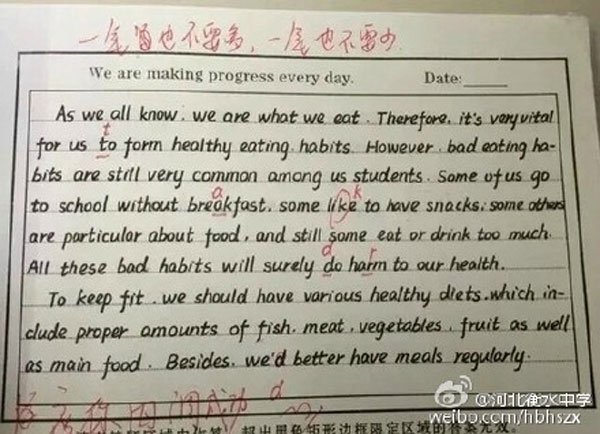 We are making progress every day. Date:
As we all know, we are what we eat. Therefore, it's very vital
t
for us to form healthy eating habits. However, bad eating ha-
bits are still very common among us students. Some of us go
a k
to school without breakfast, some like to have snacks, some others
are particular about food, and still some eat or drink too much.
d r
All these bad habits will surely do harm to our health.
To keep fit, we should have various healthy diets, which in-
clude proper amounts of fish, meat, vegetables, fruit as well
as main food. Besides, we'd better have meals regularly.
d
@河北衡水中学
weibo.com/hbhszx
超出黑色矩形边框限定区域的答案无效